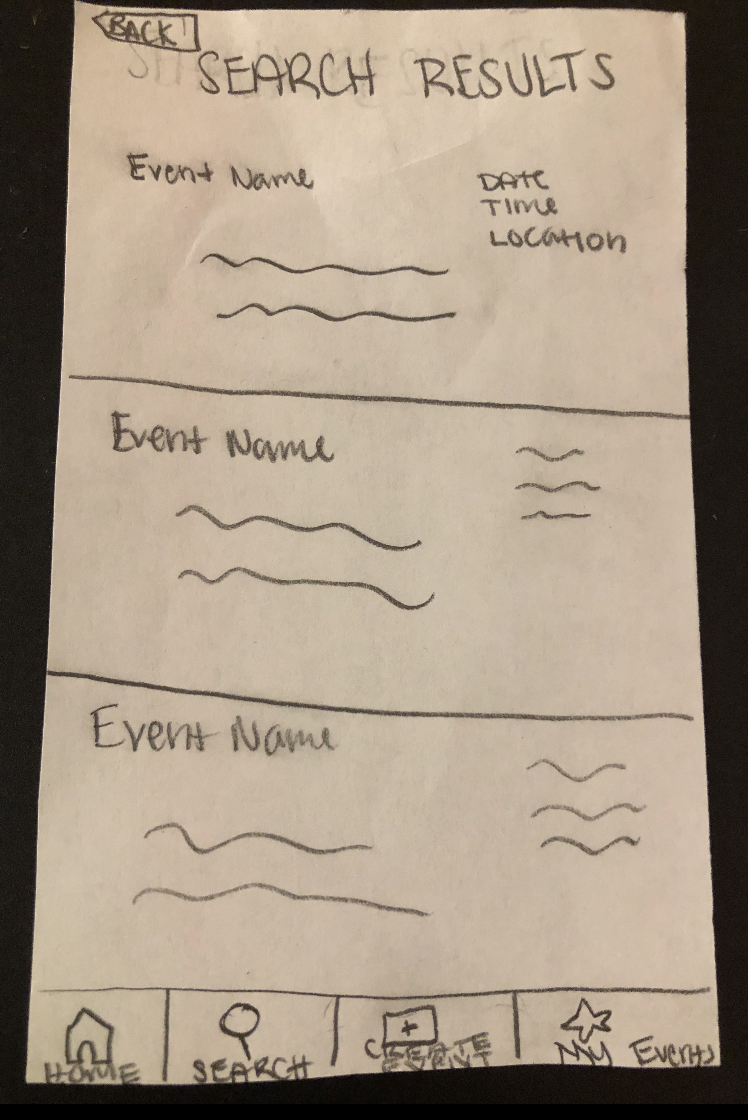 BACK
SEARCH RESULTS
Event Name
DATE
TIME
LOCATION
Event Name
Event Name
HOME
SEARCH
CREATE
EVENT
MY Events